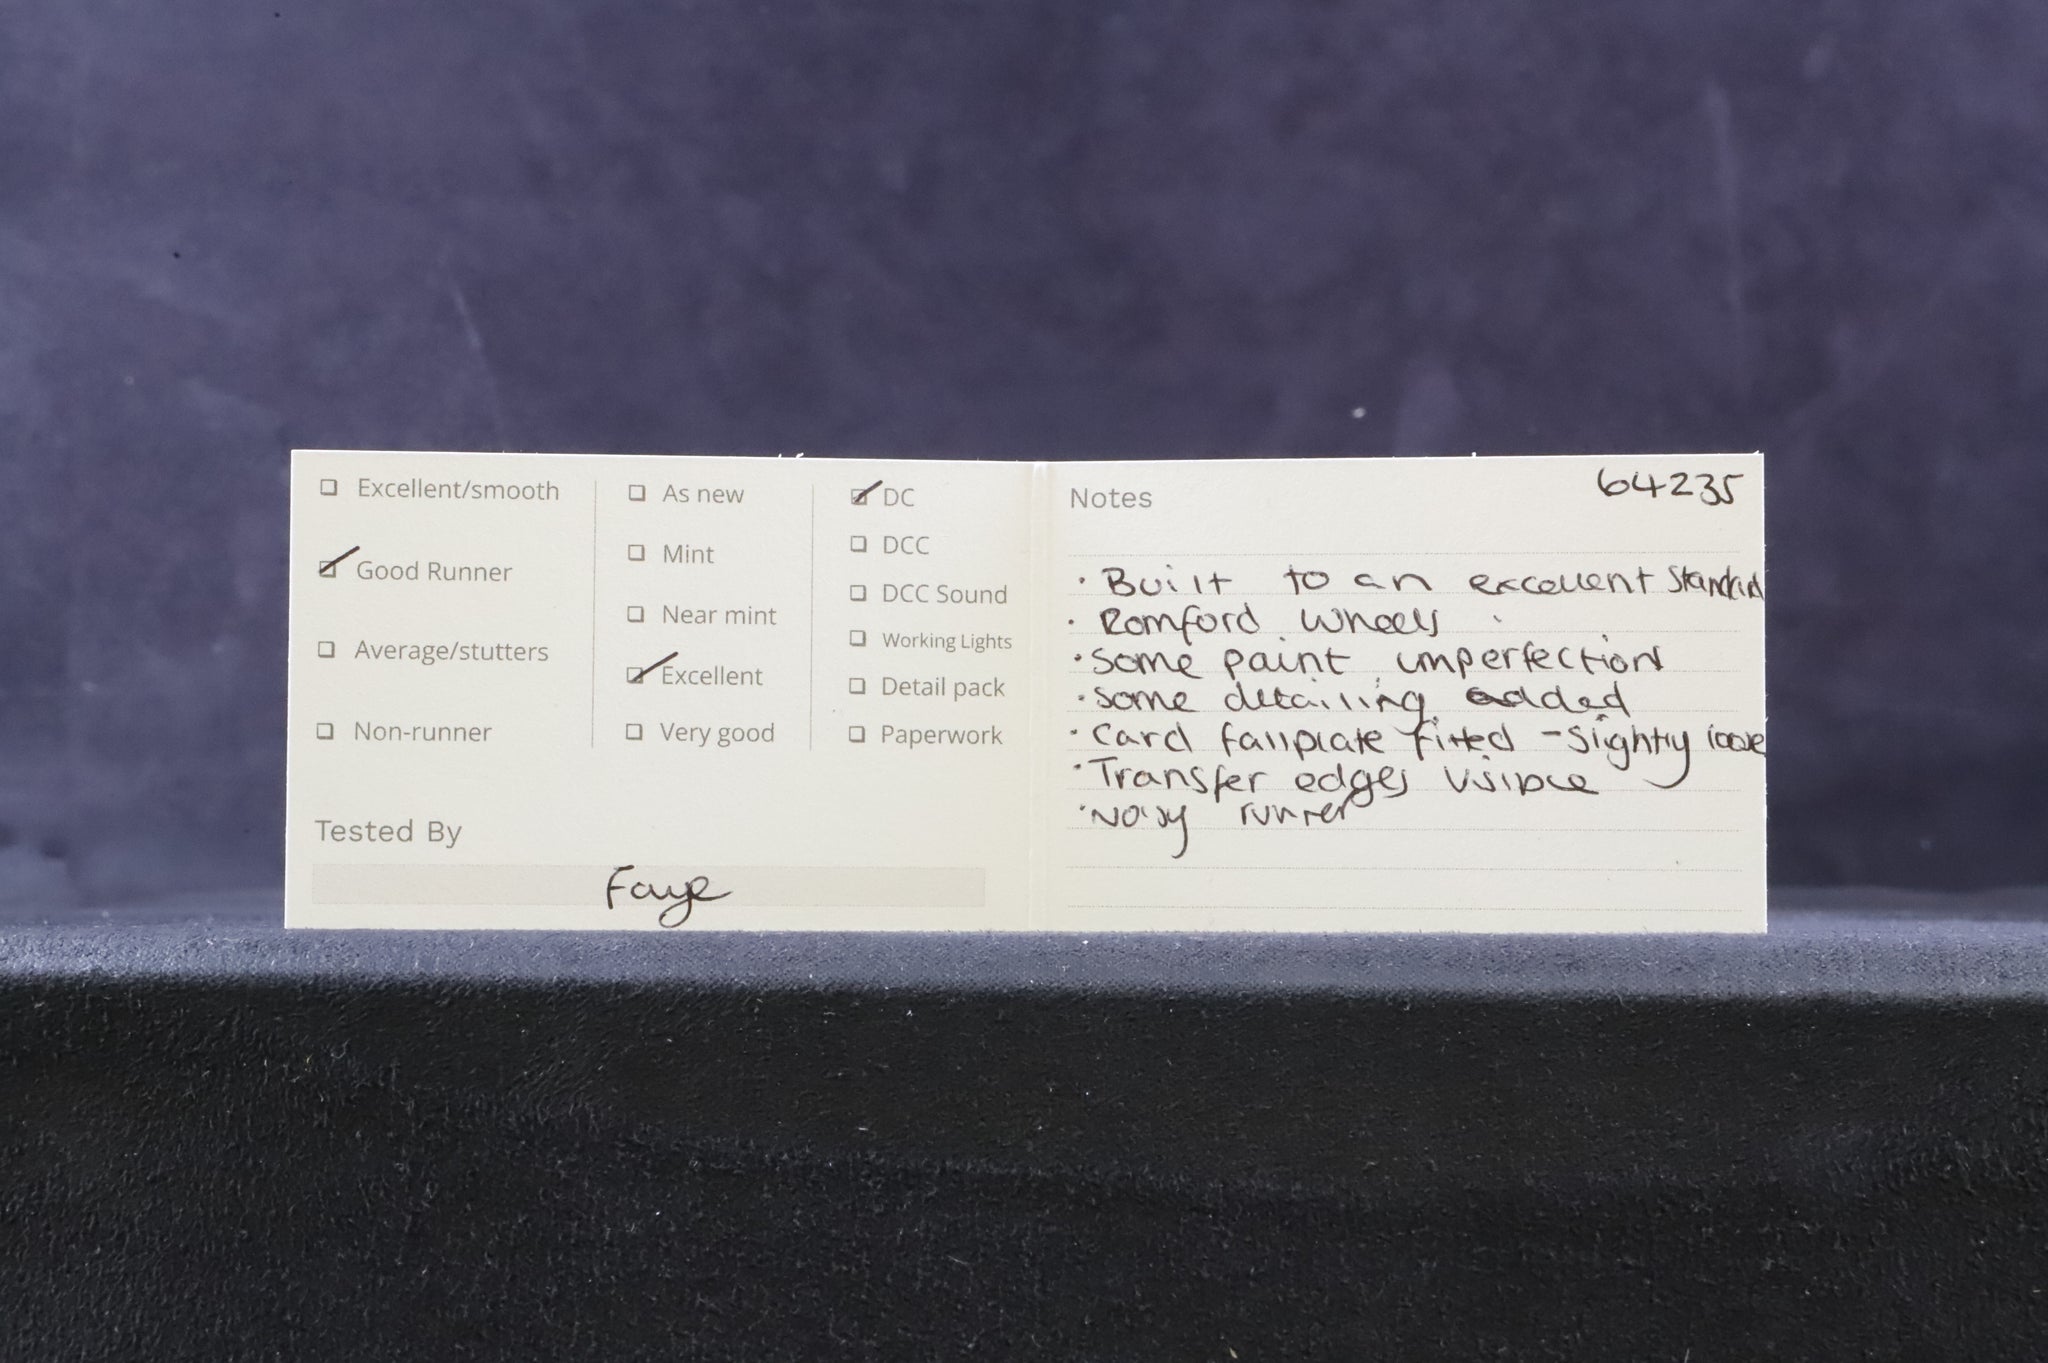 Excellent/smooth
Good Runner
Average/stutters
Non-runner
As new
Mint
Near mint
Excellent
Very good
DC
DCC
DCC Sound
Working Lights
Detail pack
Paperwork
Tested By
Faye
Notes
64235
· Built to an excellent standard
· Romford wheels
· Some paint imperfections
· Some detailing added
· Card fallplate fitted - Slightly loose
· Transfer edges visible
· Noisy runner